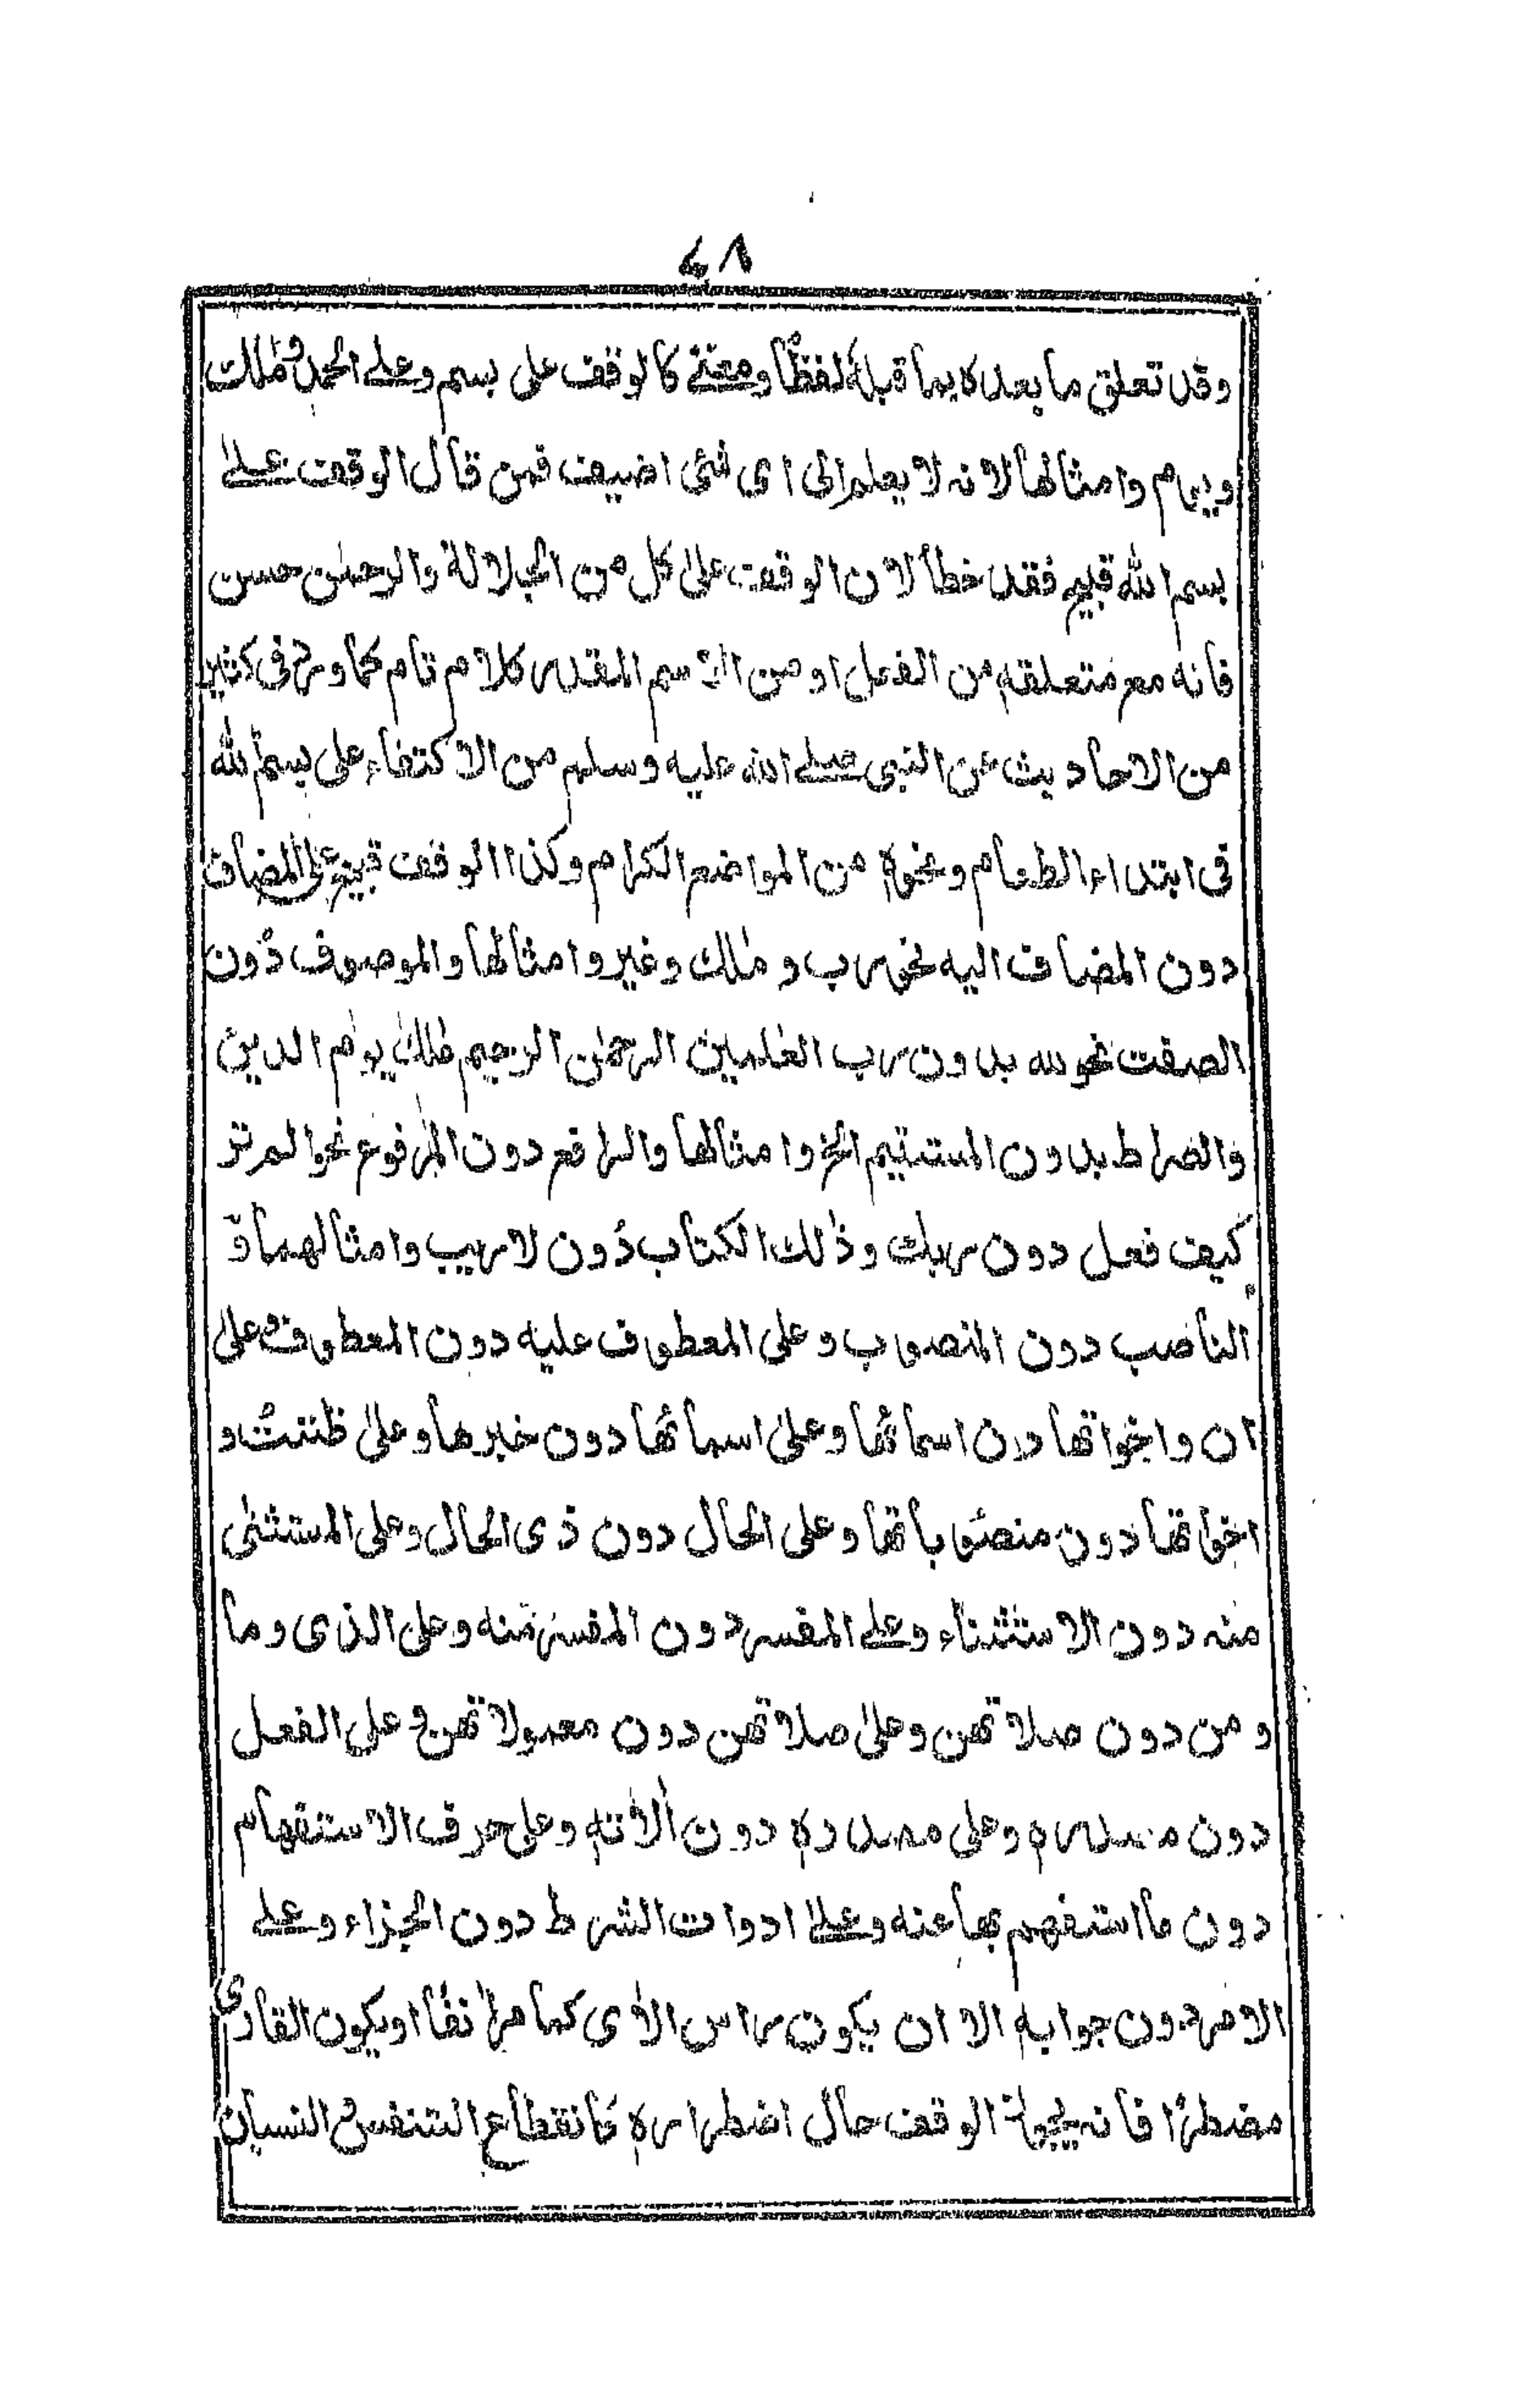 ٤٨
وقد تعلق ما بعده بما قبله لفظًا ومعنے كالوقف على بسم وعلے الحمد وملك
ويوم وامثالها لانه لا يعلم الى اى شئ اضيف فمن قال الوقف علےٰ
بسم الله قبيح فقد خطأ لان الوقف علىٰ كل من الجلالة والرحمٰن حسن
فانه مع متعلقه من الفعل او من الاسم المقدر كلام تام كما ورد فى كثير
من الاحاديث عن النبى صلے الله عليه وسلم من الاكتفاء على بسم الله
فى ابتداء الطعام ونحوه من المواضع الكرام وكذا الوقف قبيح على المضاف
دون المضاف اليه نحو رب و ملٰك وغير وامثالها والموصوف دون
الصفت نحو لله بدون رب العٰلمين الرحمٰن الرحيم ملٰك يوم الدين
والصراط بدون المستقيم الخ وامثالها والرافع دون المرفوع نحو الم تر
كيف فعل دون ربك وذٰلك الكتاب دون لا ريب وامثالهما و
الناصب دون المنصوب وعلى المعطوف عليه دون المعطوف وعلىٰ
ان واخواتها دون اسمائها وعلىٰ اسمائها دون خبرها وعلىٰ ظننت و
اخواتها دون منصوباتها وعلى الحال دون ذى الحال وعلى المستثنىٰ
منه دون الاستثناء وعلے المفسر دون المفسر منه وعلى الذى وما
ومن دون صلاتهن وعلىٰ صلاتهن دون معمولاتهن وعلى الفعل
دون مصدره وعلى مصدره دون اٰلاته وعلى حرف الاستفهام
دون ما استفهم بها عنه وعلےٰ ادوات الشرط دون الجزاء وعلے
الامر دون جوابه الا ان يكون راس الاٰى كما مر اٰنفًا او يكون القارى
مضطرًا فانه يجوز الوقف حال اضطراره كانقطاع التنفس والنسيان